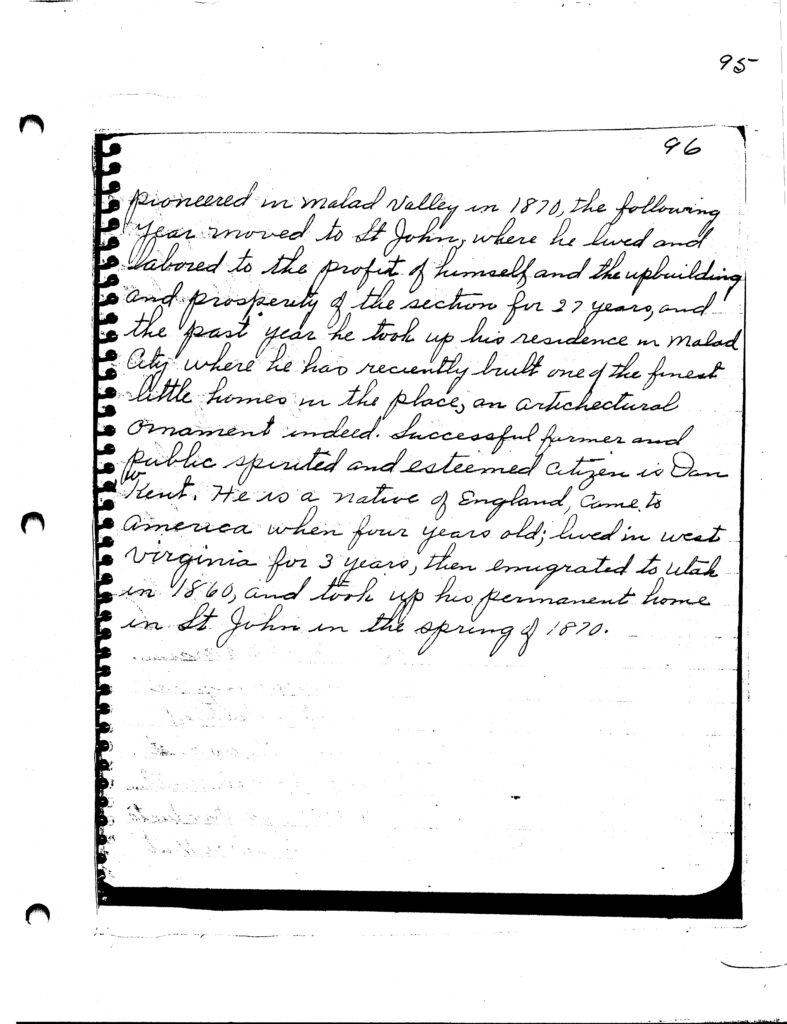 95
96
pioneered in Malad Valley in 1870, the following
year moved to St John, where he lived and
labored to the profit of himself and the upbuilding
and prosperity of the section for 27 years, and
the past year he took up his residence in Malad
City where he has recently built one of the finest
little homes in the place, an artichectural
ornament indeed. Successful farmer and
public spirited and esteemed citizen is Dan
W
Kent. He is a native of England, came to
America when four years old; lived in west
Virginia for 3 years, then emigrated to Utah
in 1860, and took up his permanent home
in St John in the spring of 1870.